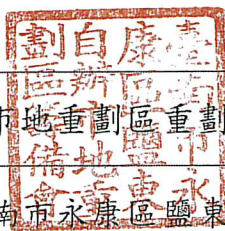 市地重劃區重劃
南市永康區鹽東
臺南市永
康區鹽東
自辦市地重
劃區籌備會